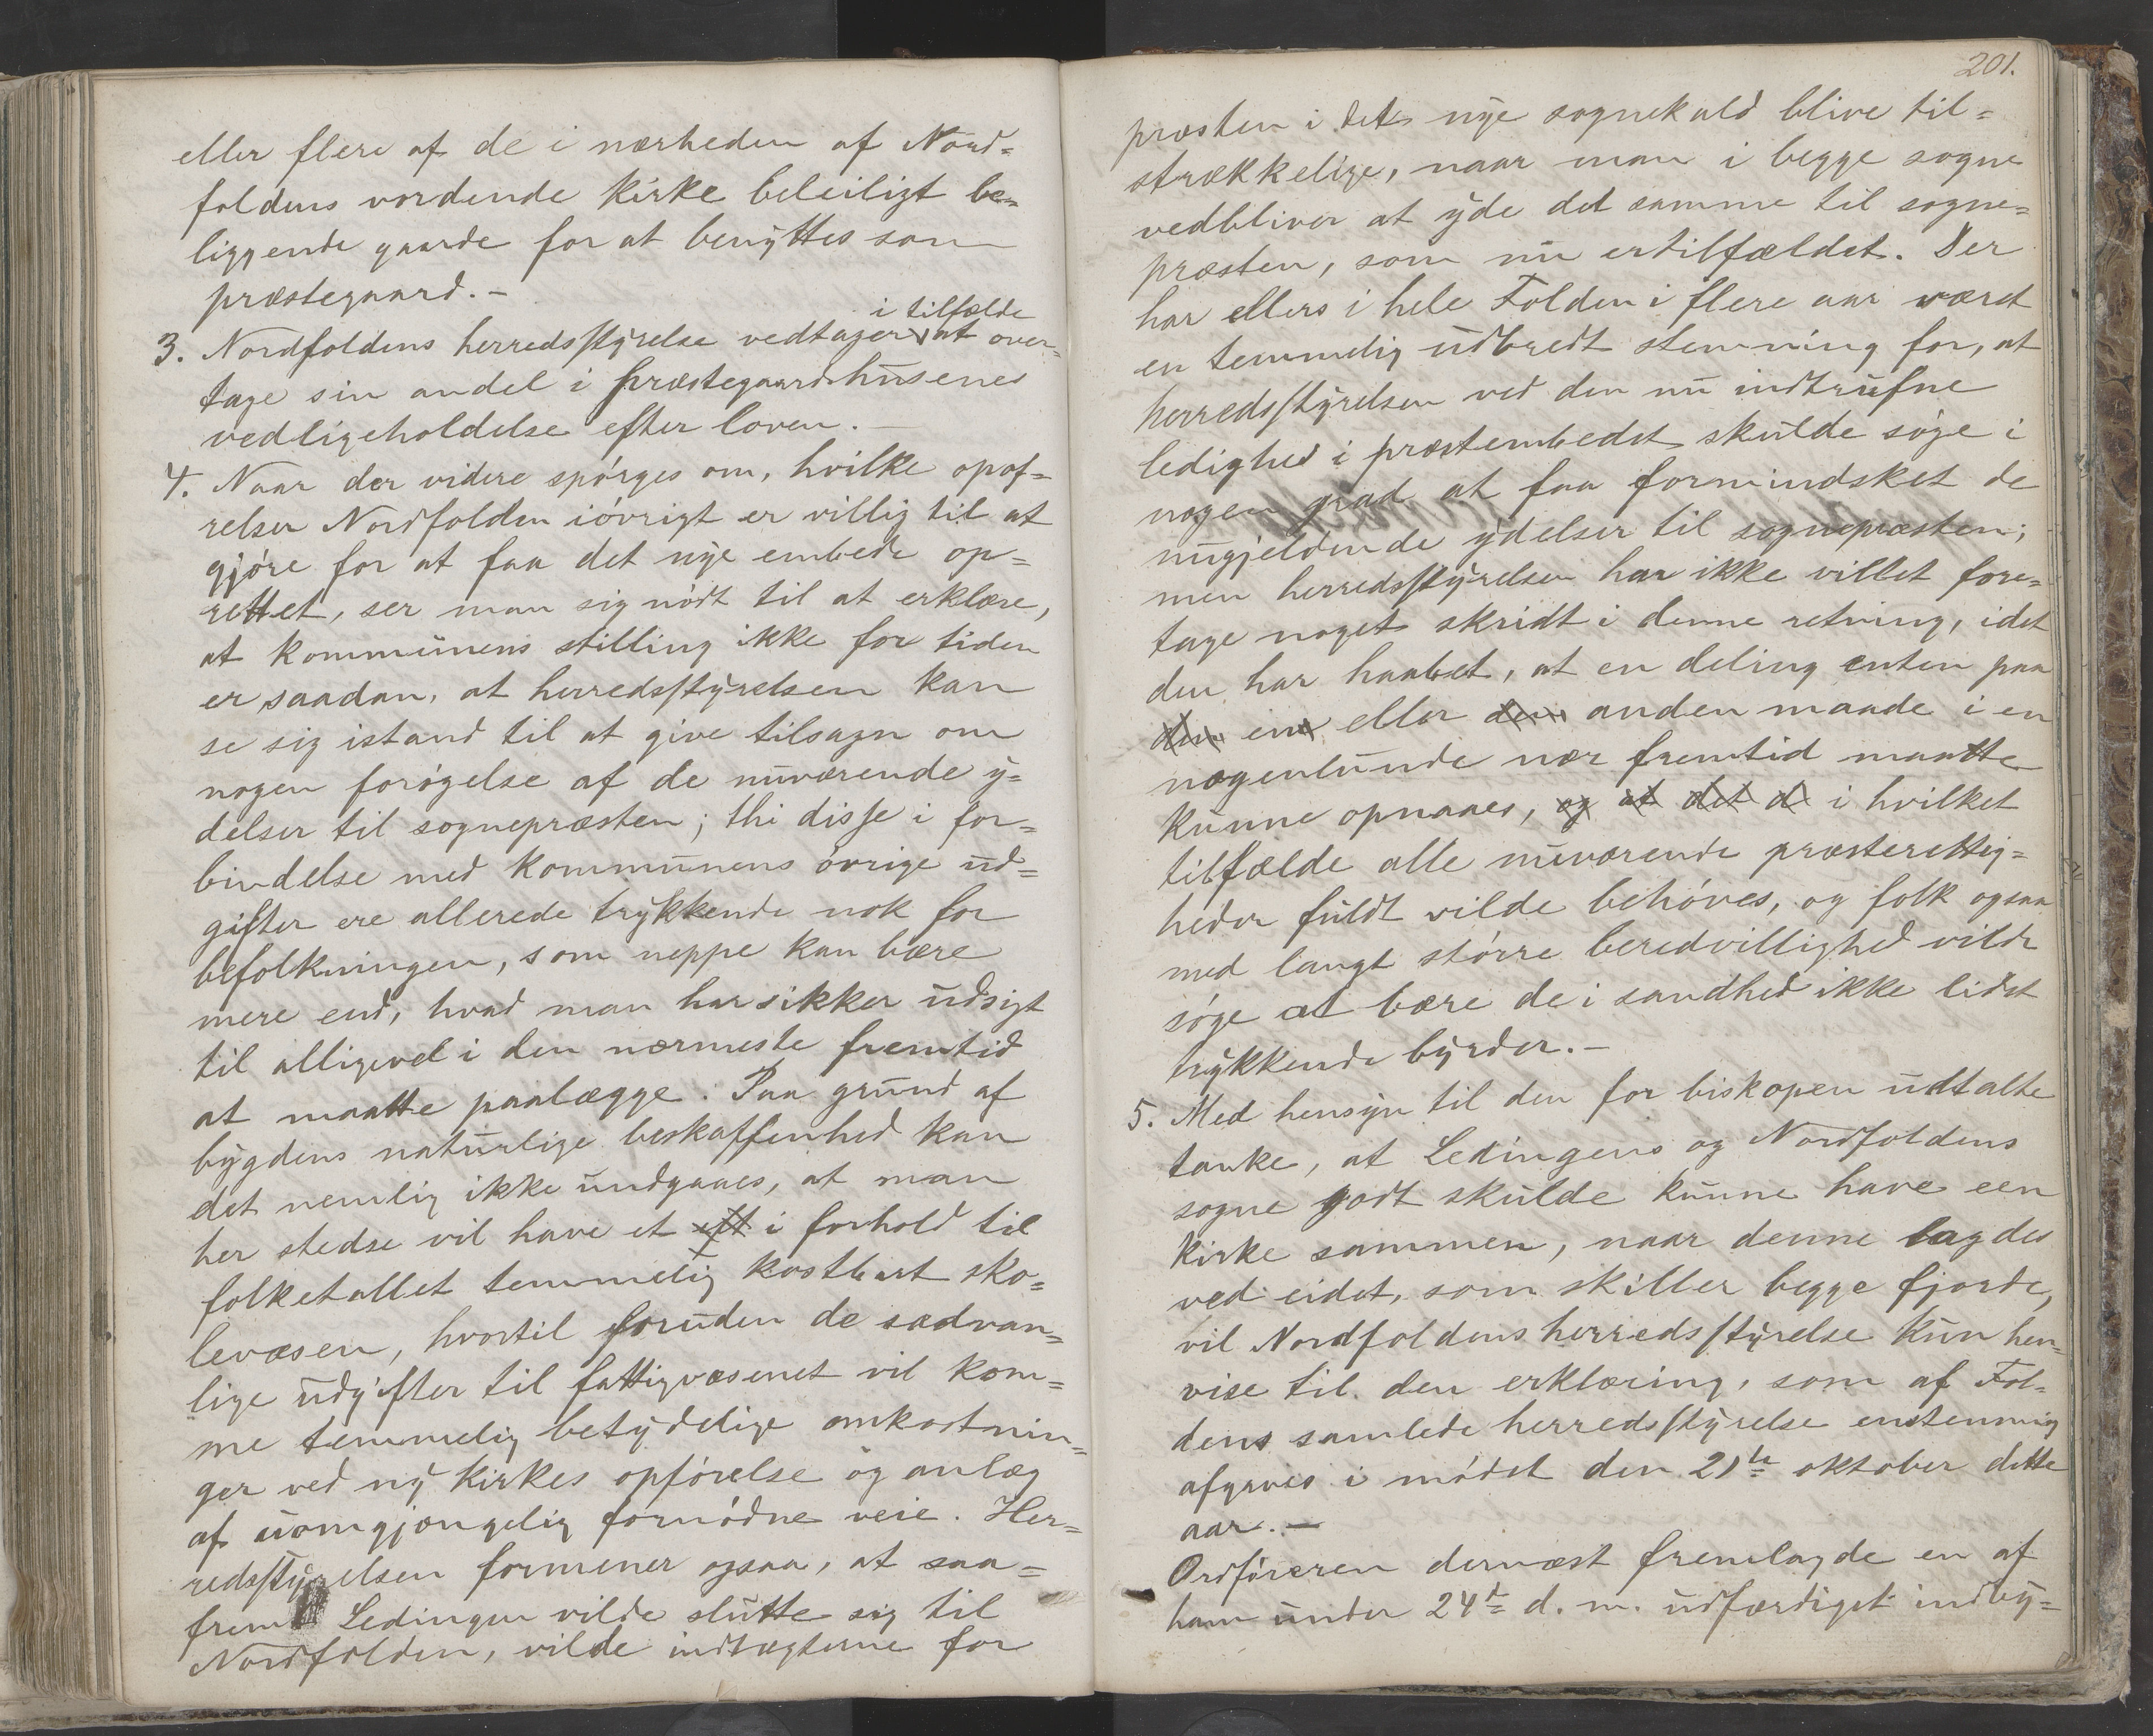 eller flere af de i nærheden af Nord=
foldens vordende kirke beleiligt be=
liggende gaarde for at benyttes som
præstegaard.-
i tilfælde
3. Nordfoldens herredsstyrelse vedtager at over=
tage sin andel i præstegaardshusenes
vedligeholdelse efter loven.-
4. Naar der videre spørges om, hvilke opof=
relser Nordfolden iøvrigt er villig til at
gjøre for at faa det nye embede op=
rettet, ser man sig nødt til at erklære,
at kommunens stilling ikke for tiden
er saadan, at herredsstyrelsen kan
se sig istand til at give tilsagn om
nogen forøgelse af de nuværende y=
delser til sognepræsten; thi disse i for=
bindelse med kommunens øvrige ud=
gifter ere allerede trykkende nok for
befolkningen, som neppe kan bære
mere end, hvad man har sikker udsigt
til alligevel i den nærmeste fremtid
at maatte paalægge. Paa grund af
bygdens naturlige beskaffenhed kan
det nemlig ikke undgaaes, at man
her stedse vil have et eft i forhold til
folketallet temmelig kostbart sko=
levæsen, hvortil foruden de sædvan=
lige udgifter til fattigvæsenet vil kom=
me temmelig betydelige omkostnin=
ger ved ny kirkes opførelse og anlæg
af uomgjængelig fornødne veie. Her=
redsstyrelsen formener ogsaa, at saa=
fremt Ledingen vilde slutte sig til
Nordfolden, vilde indtægterne for
201.
præsten i det nye sognekald blive til=
strækkelige, naar man i begge sogne
vedbliver at yde det samme til sogne=
præsten, som nu er tilfældet. Der
har ellers i hele Folden i flere aar været
en temmelig udbredt stemning for, at
herredsstyrelsen ved den nu indtrufne
ledighed i præstembedet skulde søge i
nogen grad at faa formindsket de
nugjeldende ydelser til sognepræsten;
men herredsstyrelsen har ikke villet fore=
tage noget skridt i denne retning, idet
den har haabet, at en deling enten paa
den ene eller den anden maade i en
nogenlunde nær fremtid maatte
kunne opnaaes, og at det d i hvilket
tilfælde alle nuværende præsterettig=
heder fuldt vilde behøves, og folk ogsaa
med langt større beredvillighed vilde
søge at bære de i sandhed ikke lidet
trykkende byrder.-
5. Med hensyn til den for biskopen udtalte
tanke, at Ledingens og Nordfoldens
sogne godt skulde kunne have een
kirke sammen, naar denne lagdes
ved eidet, som skiller begge fjorde,
vil Nordfoldens herredsstyrelse kun hen=
vise til den erklæring, som af Fol=
dens samlede herredsstyrelse enstemmig
afgaves i mødet den 21de oktober dette
aar.-
Ordføreren dernæst fremlagde en af
ham under 24de d. m. udfærdiget indby=